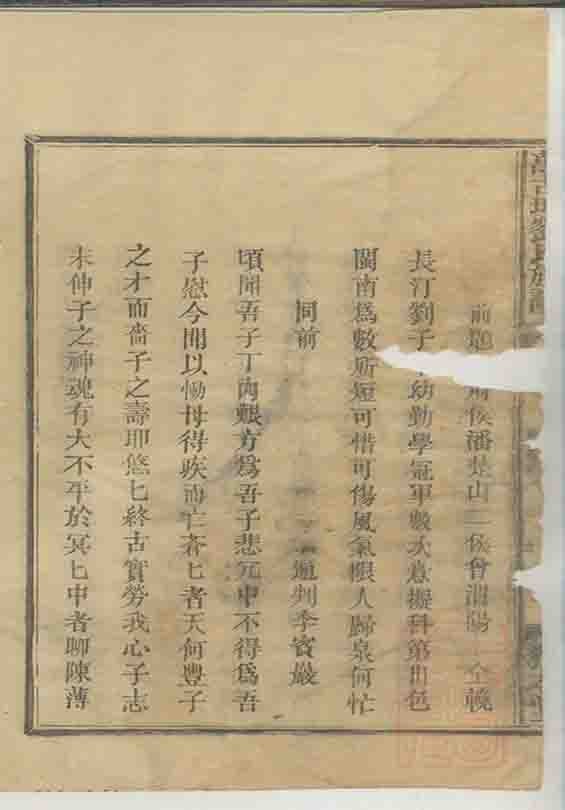 劉氏族譜
前題 侯潘 山二侯曾 陽 仝輓
長汀劉子 幼勤學冠軍數次意擬科第出色
閩南爲數所短可惜可傷風氣限人歸泉何忙
同前 通判李賓嚴
頃聞吾子丁內艱方爲吾子悲冗中不得爲吾
子慰今聞以慟母得疾而亡蒼匕者天何豐子
之才而嗇子之壽耶悠匕終古實勞我心子志
未伸子之神魂有大不平於冥匕中者聊陳薄